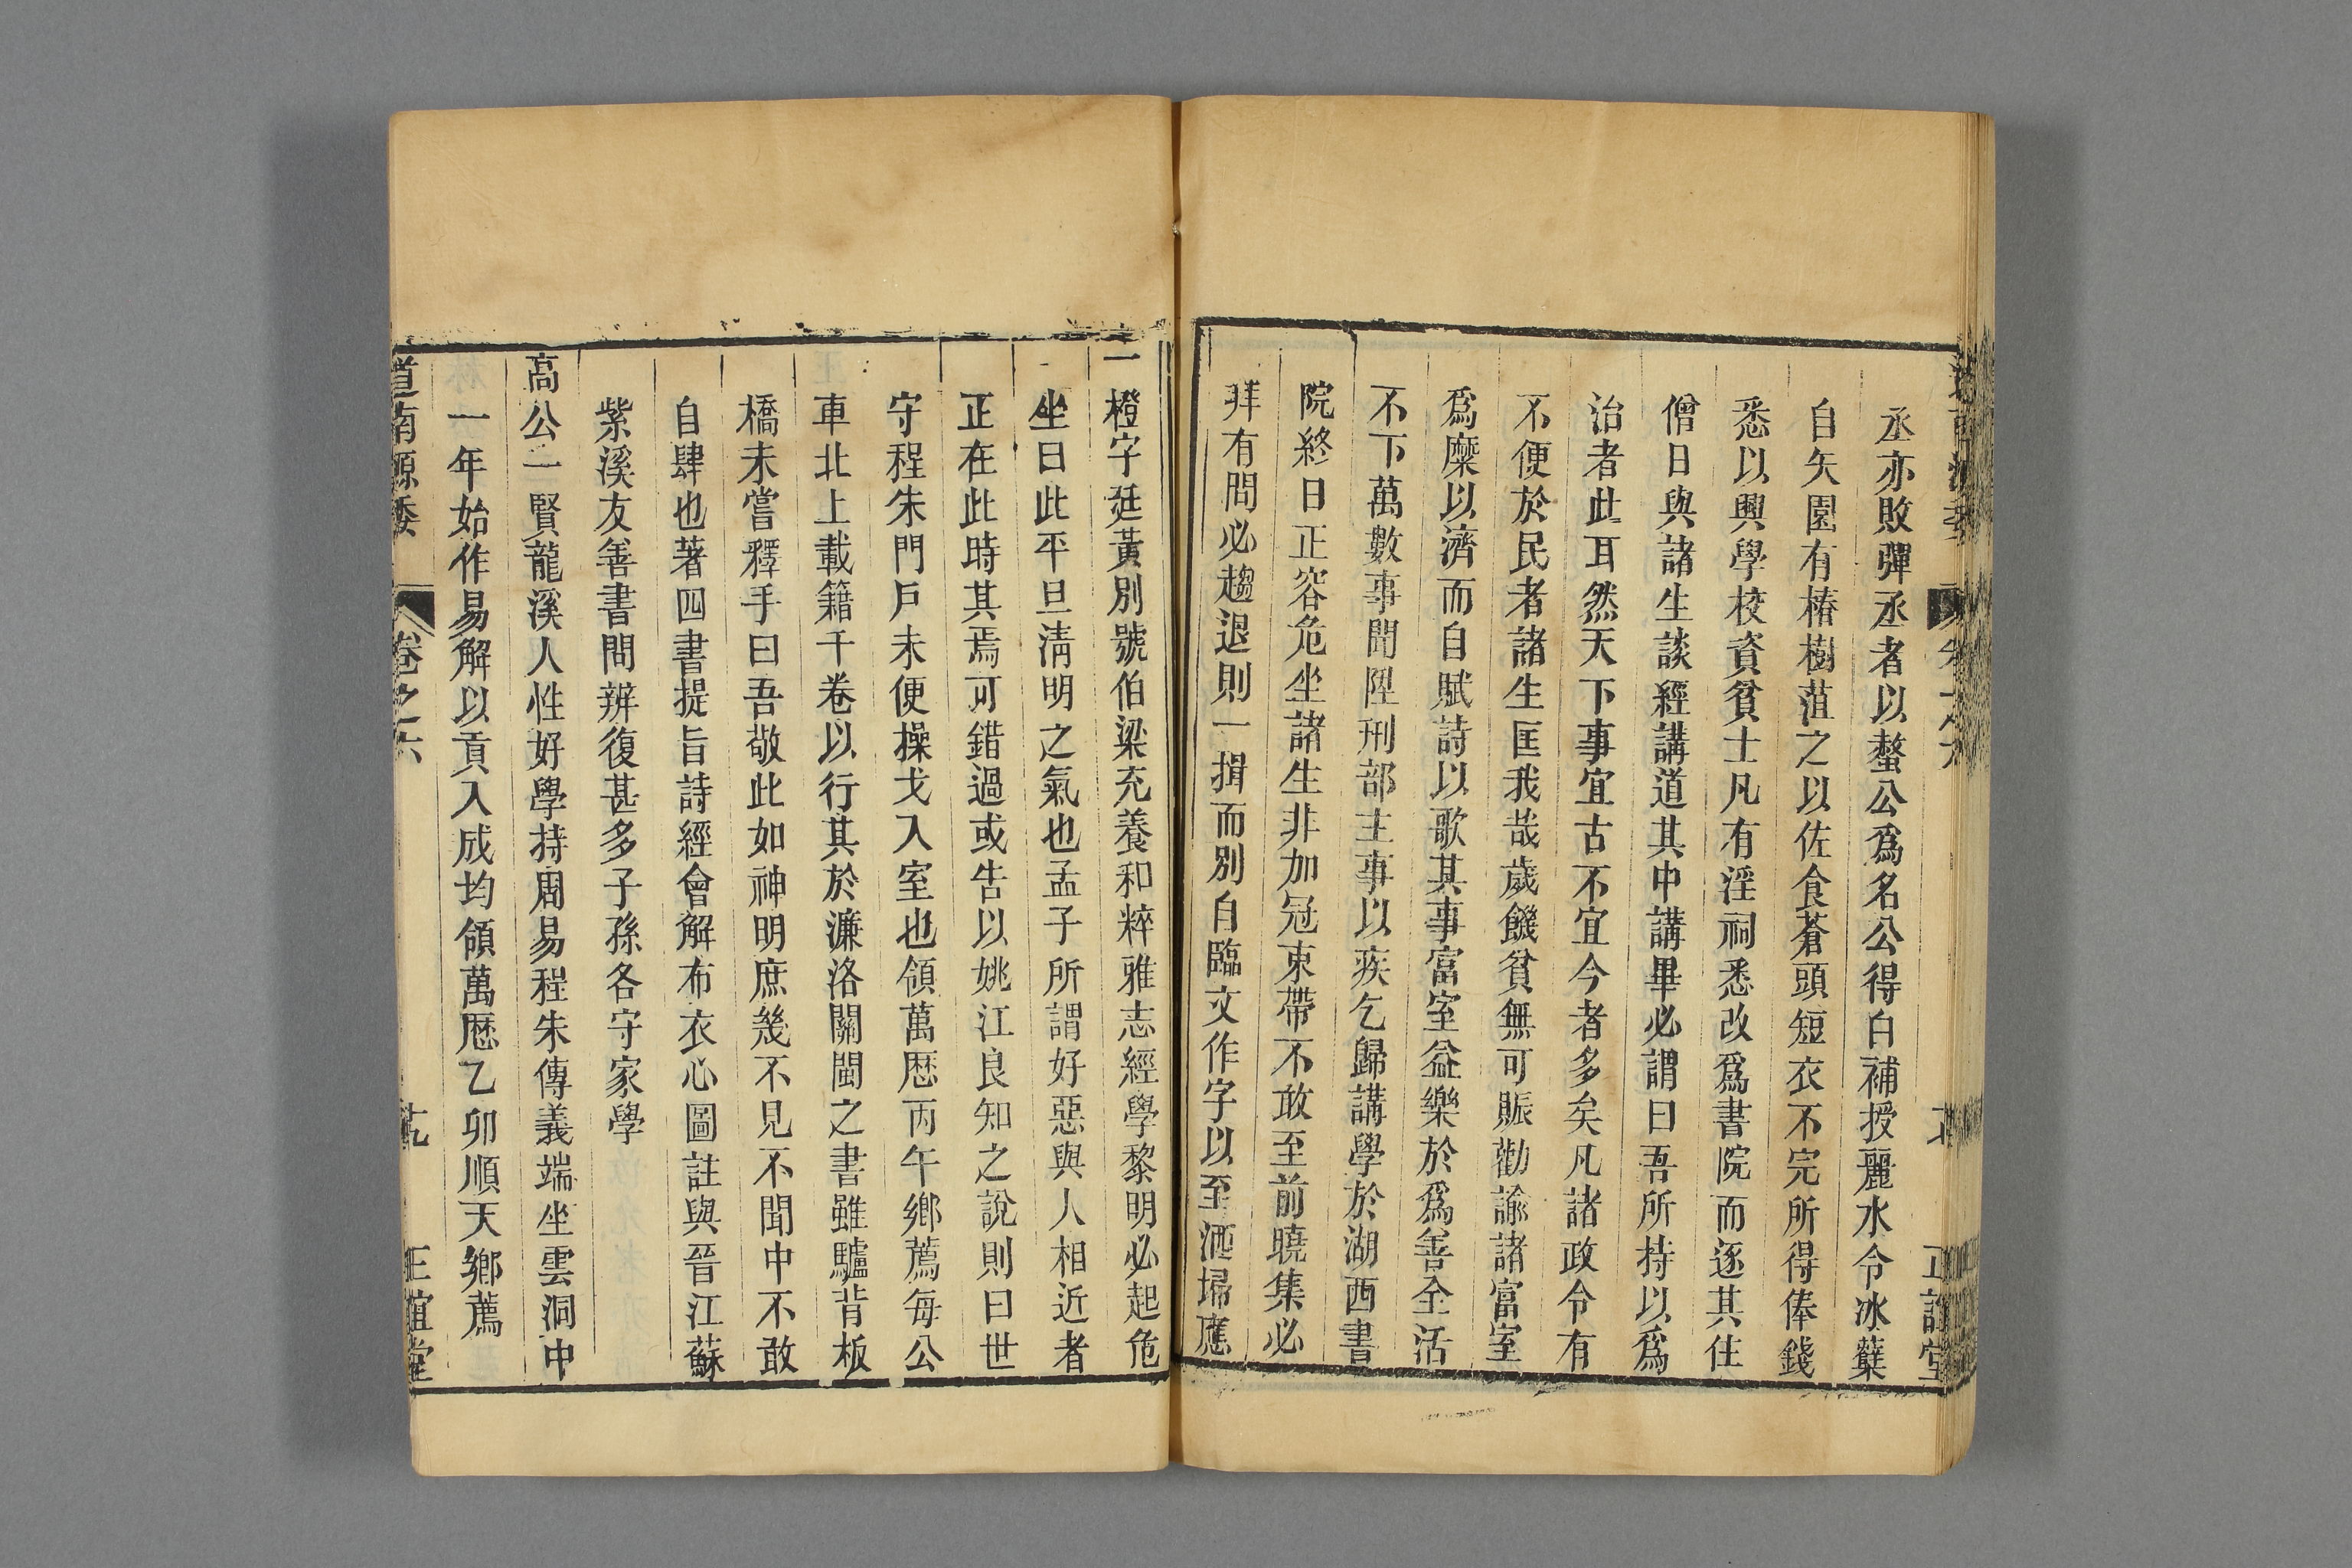 丞亦敗彈丞者以螯公爲名公得白補授麗水令冰蘗
自矢園有椿樹菹之以佐食蒼頭短衣不完所得俸錢
悉以興學校資貧士凡有淫祠悉改爲書院而逐其住
僧日與諸生談經講道其中講畢必謂曰吾所持以爲
治者此耳然天下事宜古不宜今者多矣凡諸政令有
不便於民者諸生匡我哉歲饑貧無可賑勸諭諸富室
爲糜以濟而自賦詩以歌其事富室益樂於爲善全活
不下萬數事聞陞刑部主事以疾乞歸講學於湖西書
院終日正容危坐諸生非加冠束帶不敢至前曉集必
拜有問必趨退則一揖而別自臨文作字以至洒埽應
一橙字廷黃別號伯梁充養和粹雅志經學黎明必起危
坐曰此平旦淸明之氣也孟子所謂好惡與人相近者
正在此時其焉可錯過或告以姚江良知之說則曰世
守程朱門戶未便操戈入室也領萬厯丙午鄉薦每公
車北上載籍千卷以行其於濂洛關閩之書雖驢背板
橋未嘗釋手曰吾敬此如神明庶幾不見不聞中不敢
自肆也著四書提旨詩經會解布衣心圖註與晉江蘇
紫溪友善書問辨復甚多子孫各守家學
高公一賢龍溪人性好學持周易程朱傳義端坐雲洞中
一年始作易解以貢入成均領萬厯乙卯順天鄉薦
道南源委 卷之六 正誼堂